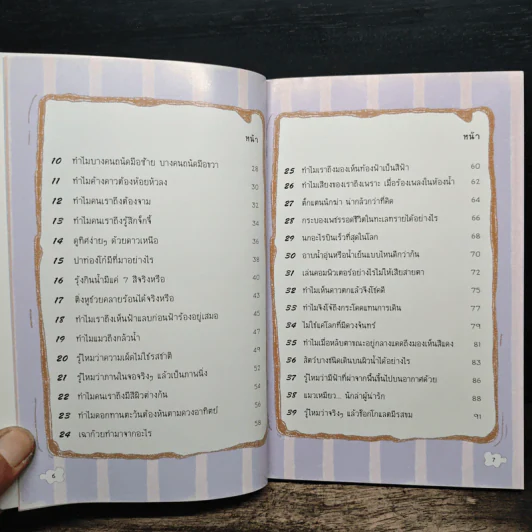 หน้า
10 ทำไมบางคนถนัดมือซ้าย บางคนถนัดมือขวา 28
11 ทำไมค้างคาวต้องห้อยหัวลง 30
12 ทำไมคนเราถึงต้องจาม 32
13 ทำไมคนเราถึงรู้สึกจั๊กจี้ 34
14 ดูทิศง่ายๆ ด้วยดาวเหนือ 36
15 ปาท่องโก๋มีที่มาอย่างไร 38
16 รุ้งกินน้ำมีแค่ 7 สีจริงหรือ 40
17 ติ่งหูช่วยคลายร้อนได้จริงหรือ 43
18 ทำไมเราถึงเห็นฟ้าแลบก่อนฟ้าร้องอยู่เสมอ 45
19 ทำไมแมวถึงกลัวน้ำ 47
20 รู้ไหมว่าความเผ็ดไม่ใช่รสชาติ 49
21 รู้ไหมว่าภาพในจอจริงๆ แล้วเป็นภาพนิ่ง 52
22 ทำไมคนเราถึงมีสีผิวต่างกัน 54
23 ทำไมดอกทานตะวันต้องหันตามดวงอาทิตย์ 56
24 เฉาก๊วยทำมาจากอะไร 58
6
หน้า
25 ทำไมเราถึงมองเห็นท้องฟ้าเป็นสีฟ้า 60
26 ทำไมเสียงของเราถึงเพราะ เมื่อร้องเพลงในห้องน้ำ 62
27 ตั๊กแตนนักฆ่า น่ากลัวกว่าที่คิด 64
28 กระบองเพชรรอดชีวิตในทะเลทรายได้อย่างไร 66
29 นกอะไรบินเร็วที่สุดในโลก 68
30 อาบน้ำอุ่นหรือน้ำเย็นแบบไหนดีกว่ากัน 70
31 เล่นคอมพิวเตอร์อย่างไรไม่ให้เสียสายตา 72
32 ทำไมเห็นดาวตกแล้วจึงโชคดี 75
33 ทำไมจิงโจ้ถึงกระโดดแทนการเดิน 77
34 ไม่ใช่แค่โลกที่มีดวงจันทร์ 79
35 ทำไมเมื่อหลับตาขณะอยู่กลางแดดถึงมองเห็นสีแดง 81
36 สัตว์บางชนิดเดินบนผิวน้ำได้อย่างไร 83
37 รู้ไหมว่ามีฟ้าที่ผ่าจากพื้นขึ้นไปบนอากาศด้วย 86
38 แมวเหมียว... นักล่าผู้น่ารัก 88
39 รู้ไหมว่าจริงๆ แล้วช็อกโกแลตมีรสขม 91
7